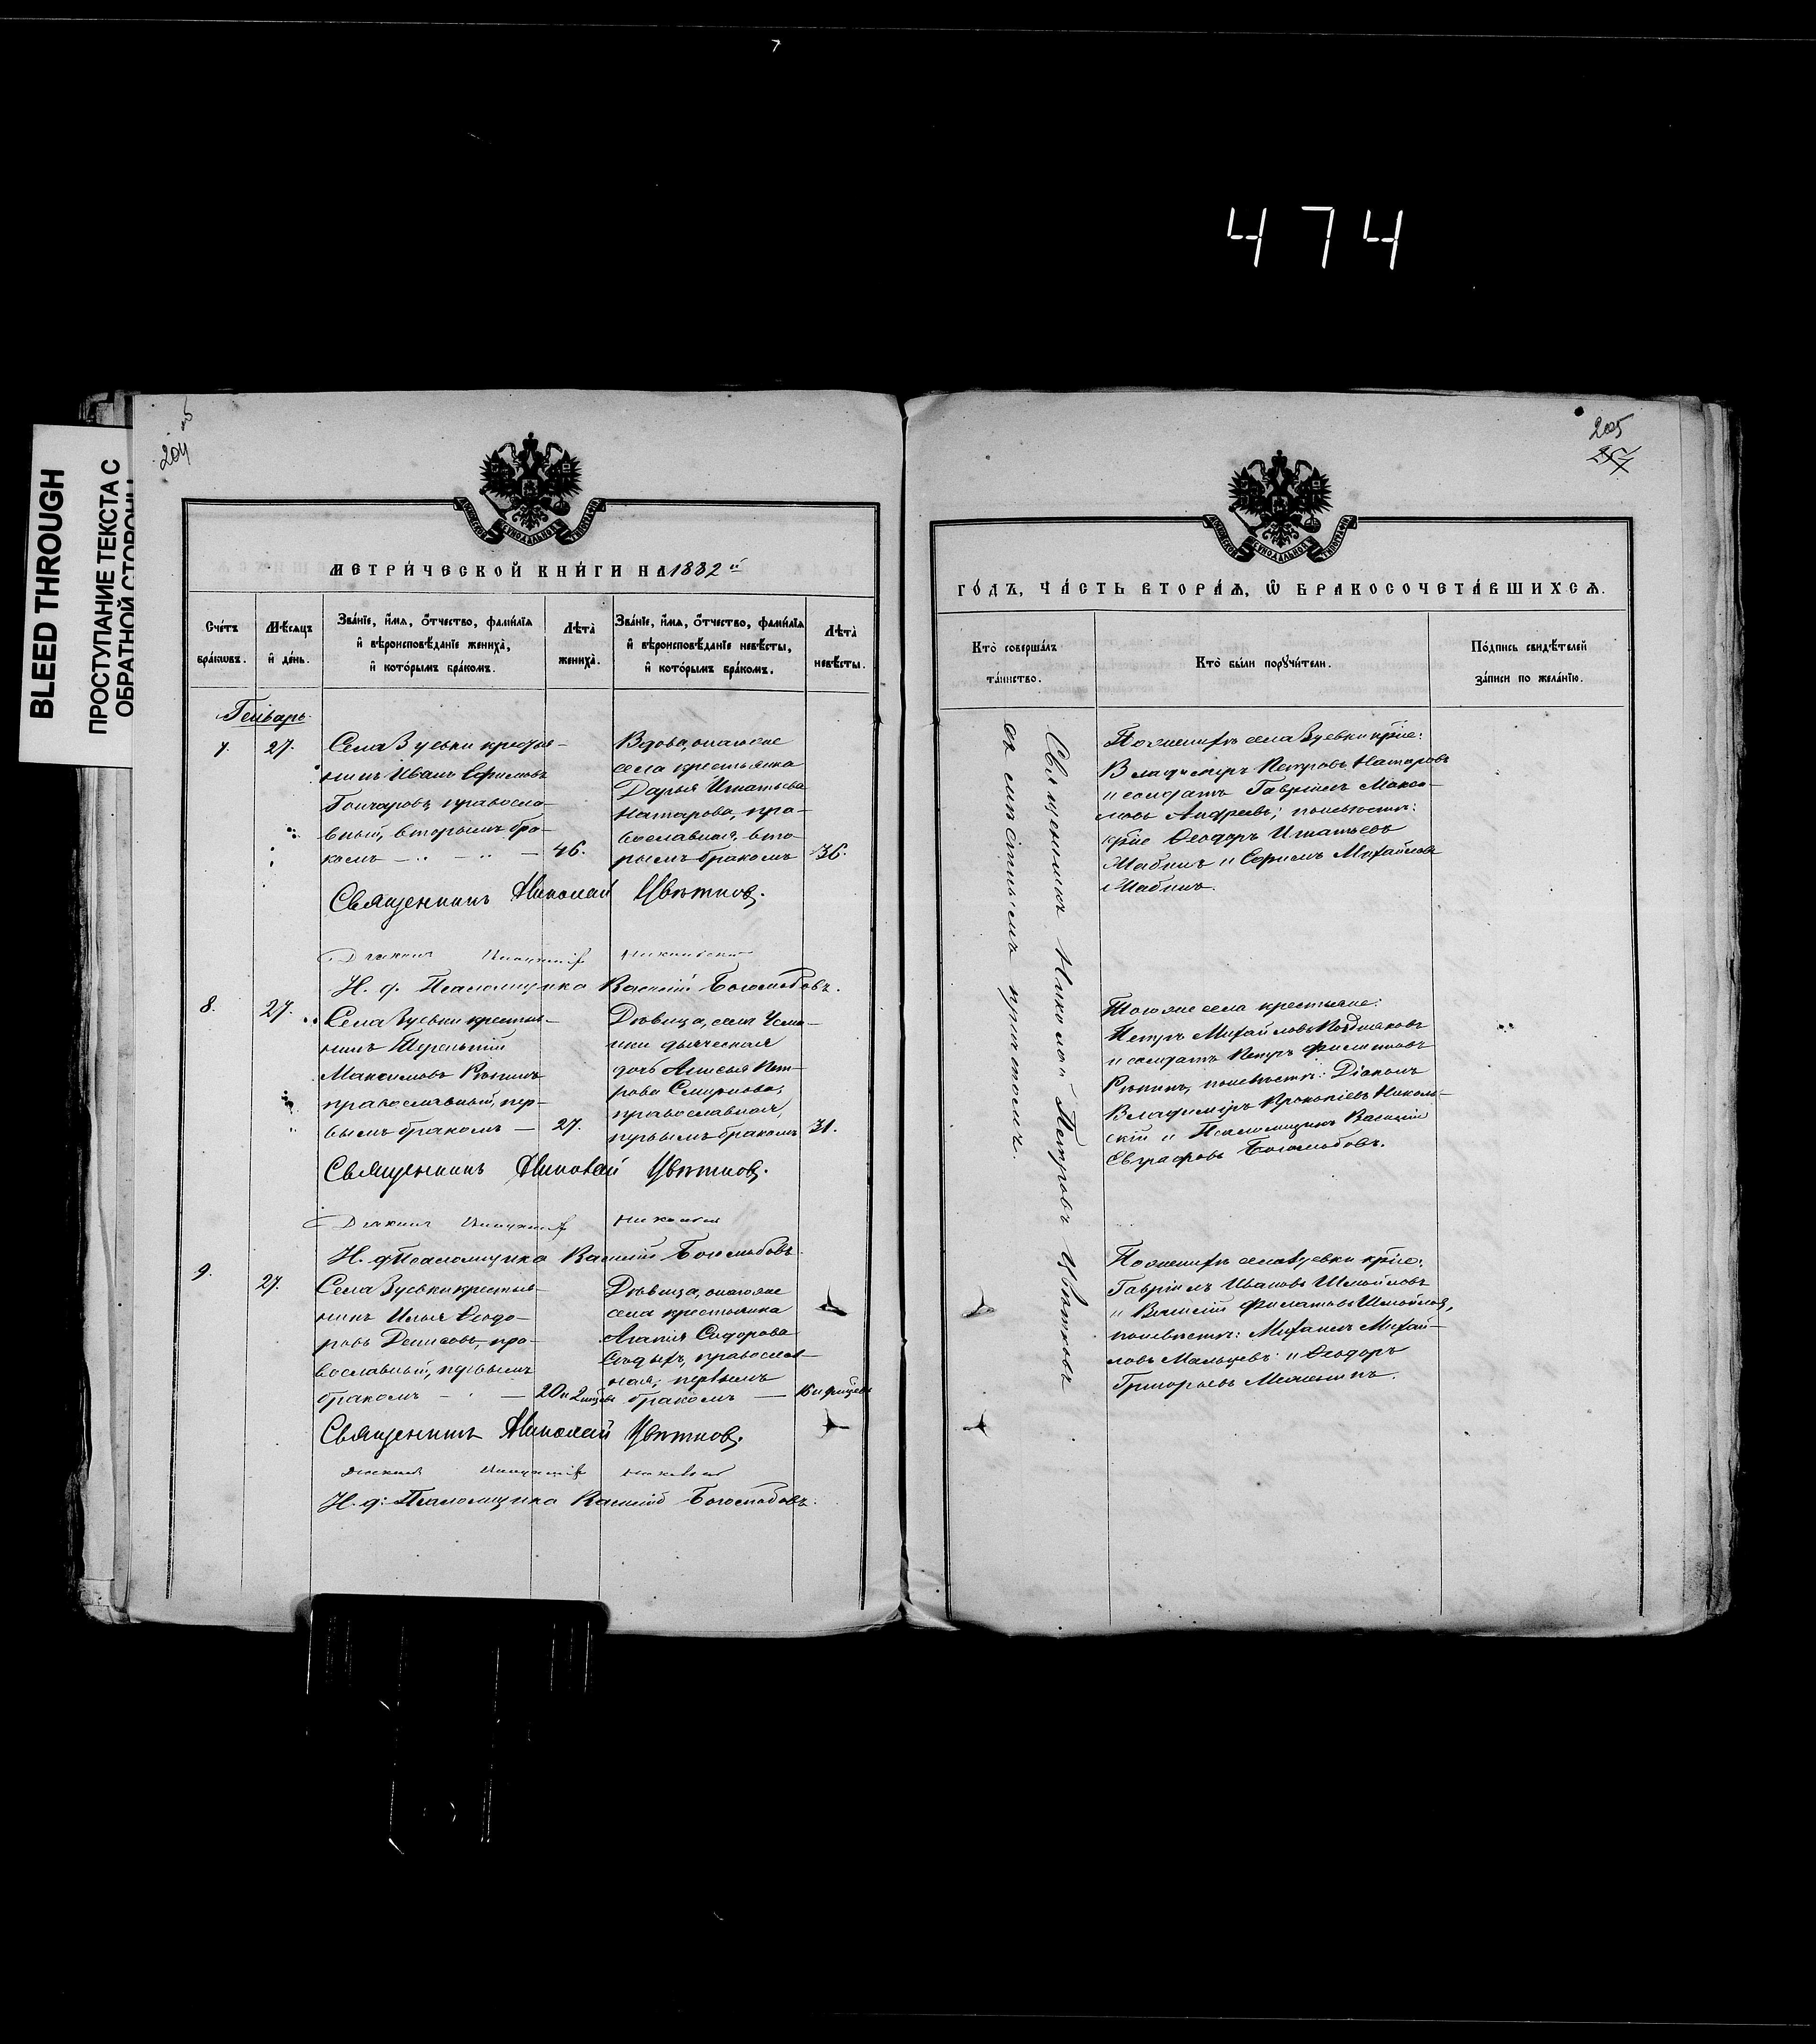 7
474
BLEED THROUGH
ПРОСТУПАНИЕ ТЕКСТА С
ОБРАТНОЙ СТОРОНЫ
204 об
МЕТРИ́ЧЕСКОЙ КНИ́ГИ НА 1882 й
Сче́тъ бра́кωвъ.
Мѣ́сяцъ и҆ де́нь.
Зва́нїе, и҆́мѧ, ѻ҆́тчество, фами́лїѧ и҆ вѣроисповѣ́данїе жениха̀, и҆ кото́рымъ бра́комъ.
Лѣта̀ жениха̀.
Зва́нїе, и҆́мѧ, ѻ҆́тчество, фами́лїѧ и҆ вѣроисповѣ́данїе невѣ́сты, и҆ кото́рымъ бра́комъ.
Лѣта̀ невѣ́сты.
Генварь
7. 27.
Села Зуевки крестья-
нинъ Иванъ Ефимовъ
Гончаровъ, правосла-
вный, вторымъ бра-
комъ — 46.
Вдова, онагоже
села крестьянка
Дарья Игнатьева
Натарова, пра-
вославная, вто-
рымъ бракомъ 36.
Священникъ Николай Цвѣтковъ.
Н. д. Псаломщика Василій Боголюбовъ.
8. 27.
Села Зуевки крестья-
нинъ Терентій
Максимовъ Рѣпинъ
православный, пер-
вымъ бракомъ — 27.
Дѣвица, села
дьяческая
дочь Анисья Пет-
рова Смирнова,
православная,
первымъ бракомъ 31.
Священникъ Николай Цвѣтковъ.
Н. д. Псаломщика Василій Боголюбовъ.
9. 27.
Села Зуевки крестья-
нинъ Илья Ѳеодо-
ровъ Денисовъ, пра-
вославный, первымъ
бракомъ — 20 и 2 мѣс
Дѣвица, онагоже
села крестьянка
Агапія Сидорова
православ-
ная, первымъ
бракомъ —
Священникъ Николай Цвѣтковъ.
Н. д. Псаломщика Василій Боголюбовъ.
205
ГО́ДЪ, ЧА́СТЬ ВТОРА́Ѧ, Ѽ БРАКОСОЧЕТА́ВШИХСѦ.
Кто̀ соверша́лъ та́инство.
Кто̀ бы́ли порꙋчи́тели.
По́дпись свидѣ́телей за́писи по жела́нїю.
Священникъ Николай Петровъ Цвѣтковъ
съ симъ причтомъ.
По женихѣ села Зуевки кр̃не:
Владимиръ Петровъ Натаровъ
и солдатъ Гавріилъ Макси-
мовъ Андреевъ; по невѣстѣ:
кр̃не Ѳеодоръ Игнатьевъ
Шабинъ и Ефимъ Михайловъ
Шабинъ.
Тогоже села крестьяне:
Петръ Михайловъ Поздняковъ
и солдатъ Петръ Филипповъ
Рѣпинъ, по невѣстѣ: Діаконъ
Владиміръ Прокопіевъ Николь-
скій и Псаломщикъ Василій
Евграфовъ Боголюбовъ.
По женихѣ села Зуевки кр̃не:
Гавріилъ Ивановъ Шмойловъ
и Василій Филатовъ Шмойловъ,
по невѣстѣ: Михаилъ Михай-
ловъ Мальцевъ и Ѳеодоръ
Григорьевъ